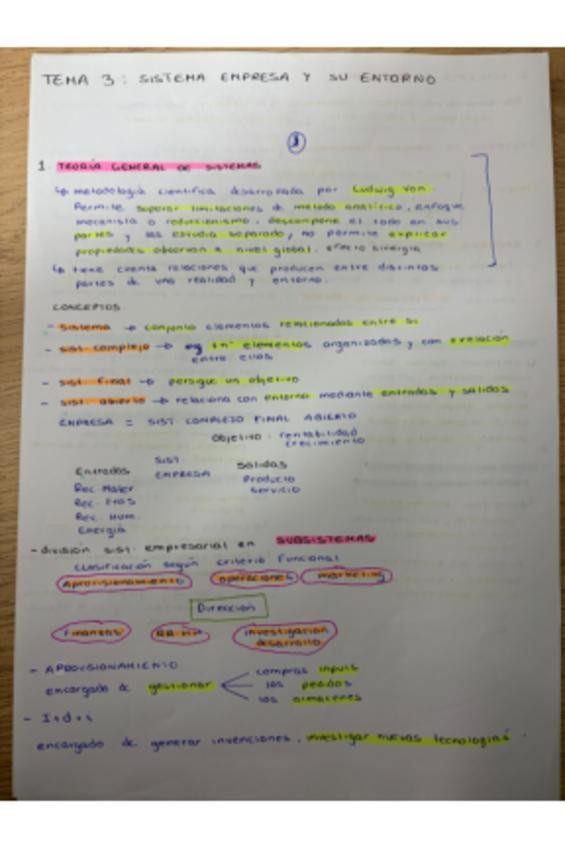 TEMA 3: SISTEMA EMPRESA Y SU ENTORNO
1. TEORÍA GENERAL DE SISTEMAS
↳ metodología científica desarrollada por Ludwig von.
Permite superar limitaciones de metodo analítico, enfoque
mecanista o reduccionismo, descompone el todo en sus
partes y las estudia separado, no permite explicar
propiedades observan a nivel global. efecto sinergia
↳ tiene cuenta relaciones que producen entre distintas
partes de una realidad y entorno.
CONCEPTOS
- sistema → conjunto elementos relacionados entre si
- sist. complejo → elementos organizados y con relación
entre ellos
- sist. final → persigue un objetivo
- sist. abierto → relaciona con entorno mediante entradas y salidas
EMPRESA = SIST. COMPLEJO FINAL ABIERTO
objetivo: rentabilidad
crecimiento
Entradas SIST. EMPRESA Salidas
Rec. Mater. Producto
Rec. Fros servicio
Rec. Hum.
Energía
- división sist. empresarial en SUBSISTEMAS
clasificación según criterio funcional
Aprovisionamiento operaciones marketing
Dirección
Finanzas RR.HH investigación desarrollo
- APROVISIONAMIENTO
encargado de gestionar compras inputs
los pedidos
los almacenes
- I+d+i
encargado de generar invenciones, investigar nuevas tecnologías.